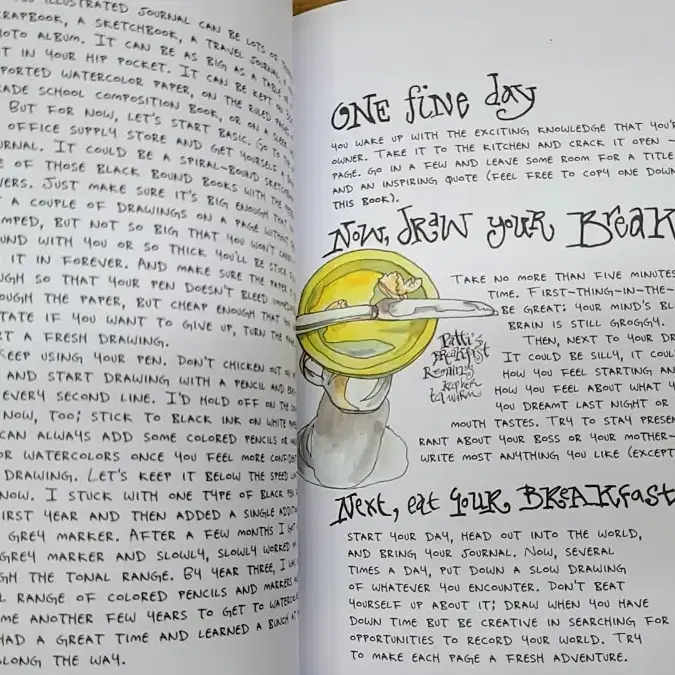 ILLUSTRATED JOURNAL CAN BE LOTS OF
SCRAPBOOK, A SKETCHBOOK, A TRAVEL JOURNAL
PHOTO ALBUM. IT CAN BE AS BIG AS A TABLE OR
IN YOUR HIP POCKET. IT CAN BE KEPT ON
WATERCOLOR PAPER, ON THE RULED PAGES
SCHOOL COMPOSITION BOOK, OR ON A
BUT FOR NOW, LET'S START BASIC. GO TO THE
OFFICE SUPPLY STORE AND GET YOURSELF A
IT COULD BE A SPIRAL-BOUND
OF THOSE BLACK BOUND BOOKS WITH THE
JUST MAKE SURE IT'S BIG ENOUGH THAT
A COUPLE OF DRAWINGS ON A PAGE WITHOUT
BUT NOT SO BIG THAT YOU WON'T
WITH YOU OR SO THICK YOU'LL BE STUCK
IT IN FOREVER. AND MAKE SURE THE PAPER
SO THAT YOUR PEN DOESN'T BLEED
THE PAPER, BUT CHEAP ENOUGH THAT YOU
IF YOU WANT TO GIVE UP, TURN THE PAGE
A FRESH DRAWING.
KEEP USING YOUR PEN. DON'T CHICKEN OUT ON
AND START DRAWING WITH A PENCIL AND
EVERY SECOND LINE. I'D HOLD OFF ON THE
NOW, TOO; STICK TO BLACK INK ON WHITE
CAN ALWAYS ADD SOME COLORED PENCILS OR
OR WATERCOLORS ONCE YOU FEEL MORE CONFIDENT
DRAWING. LET'S KEEP IT BELOW THE SPEED LIMIT
NOW. I STUCK WITH ONE TYPE OF BLACK PEN
FIRST YEAR AND THEN ADDED A SINGLE
GREY MARKER. AFTER A FEW MONTHS I
GREY MARKER AND SLOWLY, SLOWLY WORKED
THE TONAL RANGE. BY YEAR THREE, I
RANGE OF COLORED PENCILS AND MARKERS
ME ANOTHER FEW YEARS TO GET TO
HAD A GREAT TIME AND LEARNED A BUNCH
ALONG THE WAY.
ONE fine day
YOU WAKE UP WITH THE EXCITING KNOWLEDGE THAT YOU'R
OWNER. TAKE IT TO THE KITCHEN AND CRACK IT OPEN –
PAGE. GO IN A FEW AND LEAVE SOME ROOM FOR A TITLE
AND AN INSPIRING QUOTE (FEEL FREE TO COPY ONE DOWN
THIS BOOK).
Now, draw your Break
TAKE NO MORE THAN FIVE MINUTES
TIME. FIRST-THING-IN-THE-
BE GREAT; YOUR MIND'S BL
BRAIN IS STILL GROGGY.
THEN, NEXT TO YOUR DR
IT COULD BE SILLY, IT COUL
HOW YOU FEEL STARTING AN
HOW YOU FEEL ABOUT WHAT Y
YOU DREAMT LAST NIGHT OR
MOUTH TASTES. TRY TO STAY PRESEN
RANT ABOUT YOUR BOSS OR YOUR MOTHER-
WRITE MOST ANYTHING YOU LIKE (EXCEPT
Patti's
BREAKFAST
Next, eat YOUR BREAKfast
START YOUR DAY, HEAD OUT INTO THE WORLD,
AND BRING YOUR JOURNAL. NOW, SEVERAL
TIMES A DAY, PUT DOWN A SLOW DRAWING
OF WHATEVER YOU ENCOUNTER. DON'T BEAT
YOURSELF UP ABOUT IT; DRAW WHEN YOU HAVE
DOWN TIME BUT BE CREATIVE IN SEARCHING FOR
OPPORTUNITIES TO RECORD YOUR WORLD. TRY
TO MAKE EACH PAGE A FRESH ADVENTURE.